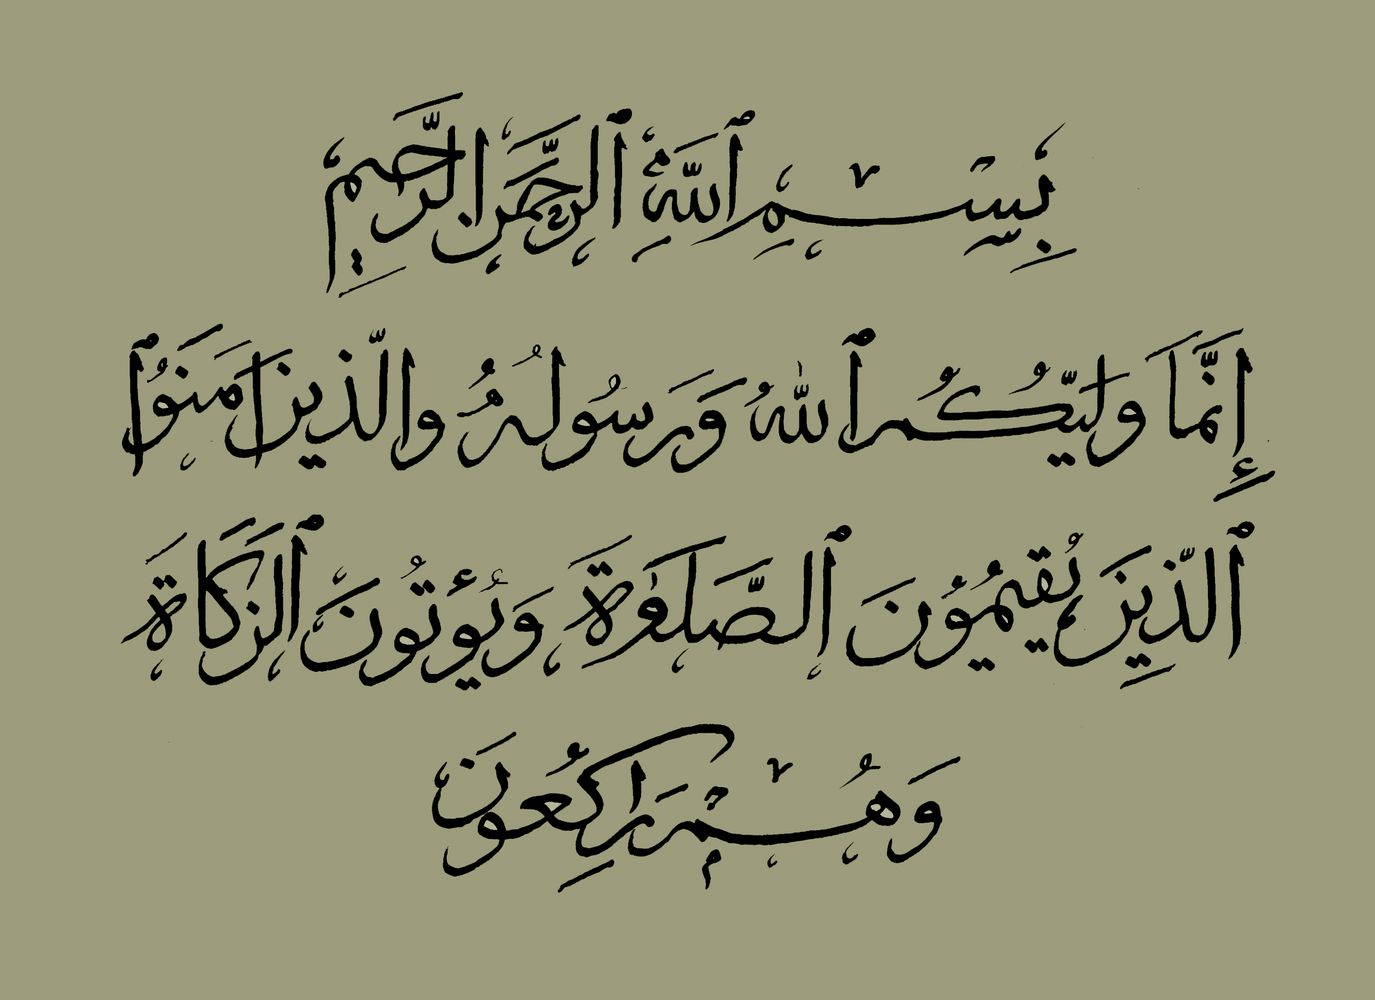 بِسْمِ ٱللَّهِ ٱلرَّحْمَنِ الرَّحِيمِ
إِنَّمَا وَلِيُّكُمُ ٱللهُ وَرَسُولُهُ والَّذِينَ امَنُوا
ٱلَّذِينَ يُقِيمُونَ ٱلصَّلَوٰةَ وَيُؤْتُونَ ٱلزَّكَاةَ
وَهُمْ رَاكِعُونَ